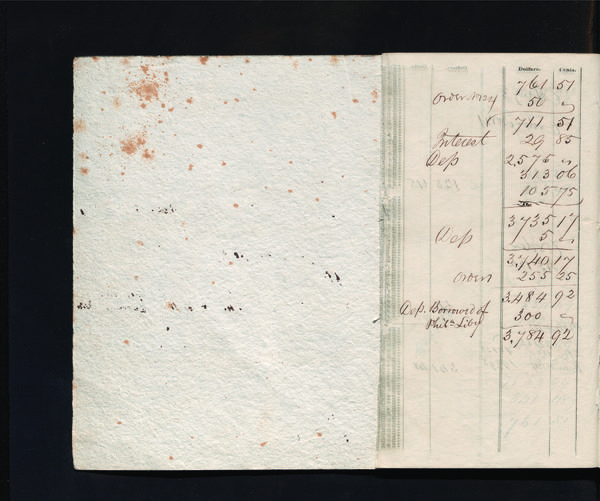 Dollars. Cents.
761 51
50 "
711 51
Interest 29 85
Dep 2576 "
313 06
105 75
3,735 17
Dep 5 "
3,740 17
orders 255 25
3,484 92
Dep. Borrowed of 300 "
Phila Liby
3,784 92